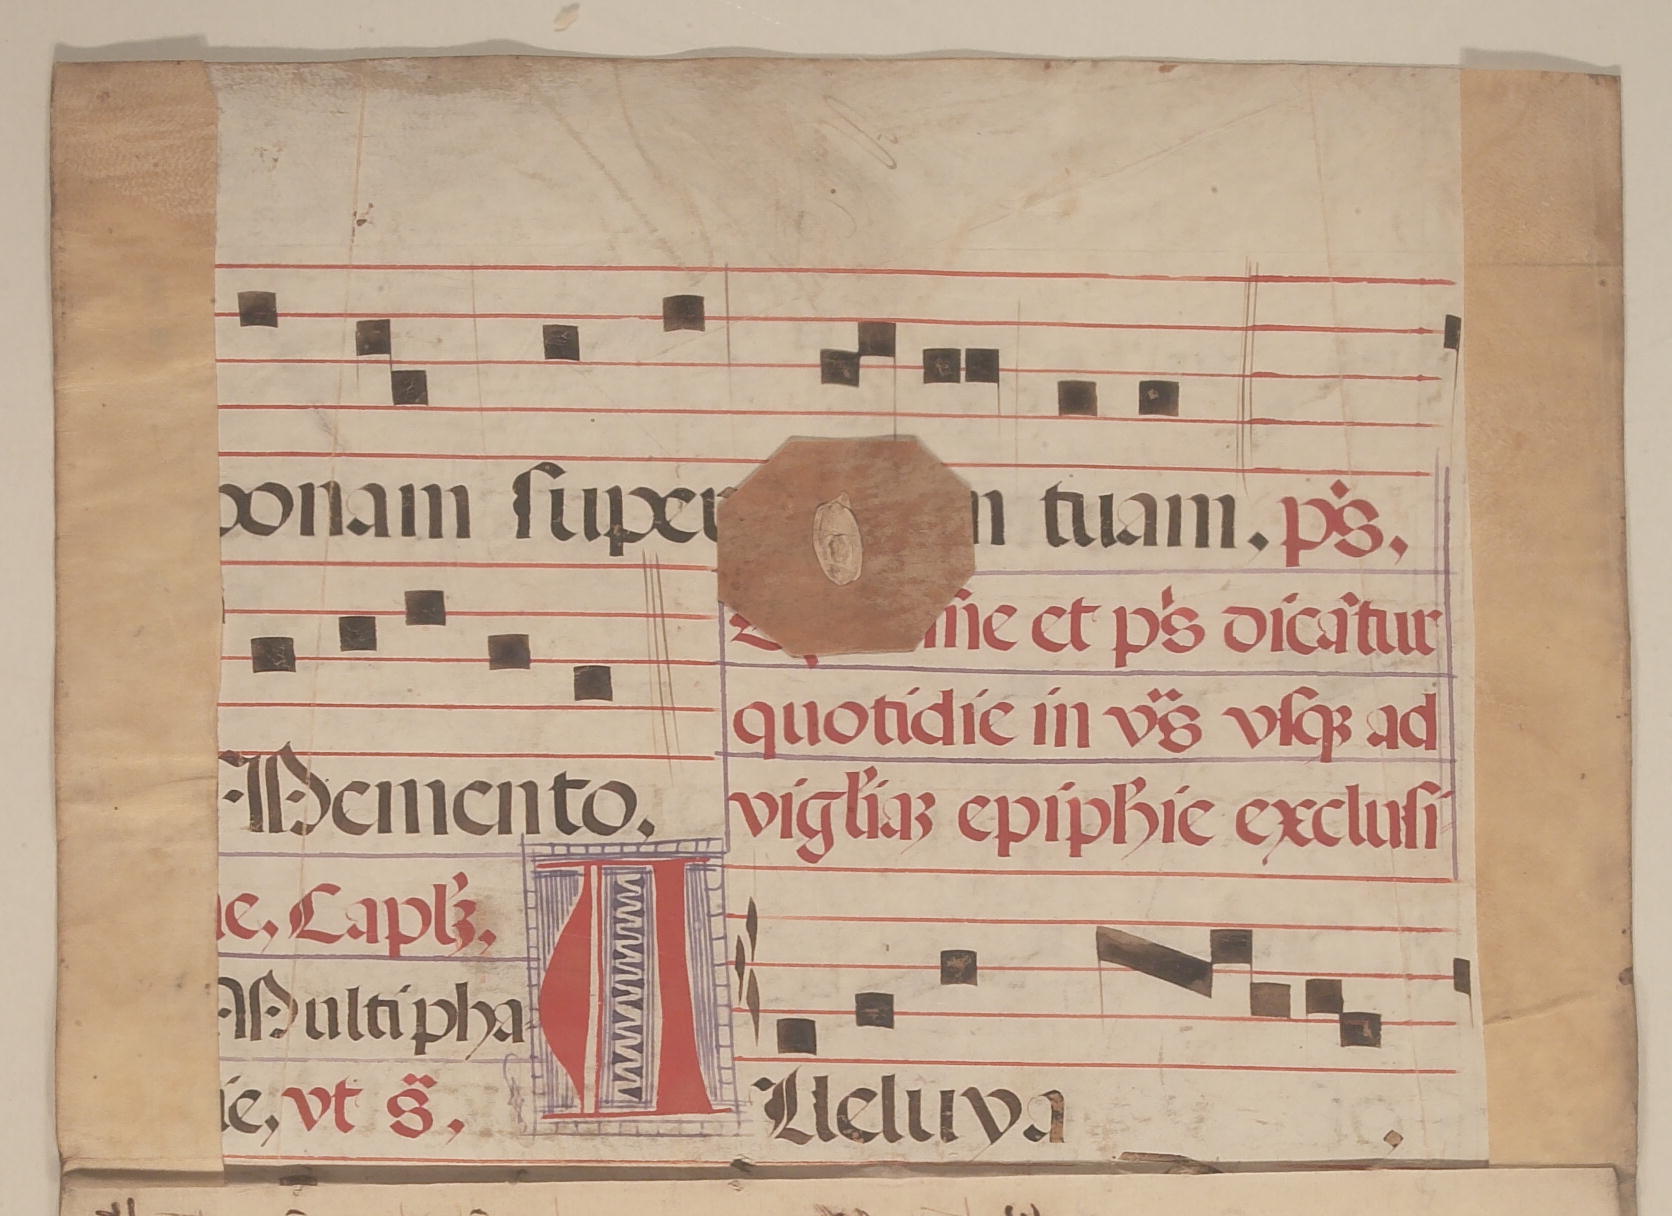 ponam super m tuam, p̄s,
sne et p̄s dicatur
quotidie in vs̈ vsq̃ ad
vigl̃iaꝫ epiph̃ie exclusi
Memento,
ne, Caplꝫ,
Multipha
ie, vt s̈,
Alleluya